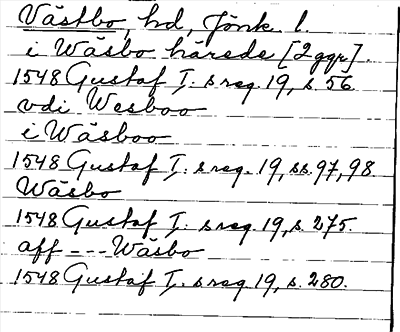 Västbo, hd, Jönk. l.
i Wäsbo härede [2 ggr].
1548 Gustaf I:s reg. 19, s. 56.
vdi Wesboo
i Wäsboo
1548 Gustaf I:s reg. 19, ss. 97, 98
Wäsbo
1548 Gustaf I:s reg. 19, s. 275.
aff --- Wäsbo
1548 Gustaf I:s reg. 19, s. 280.